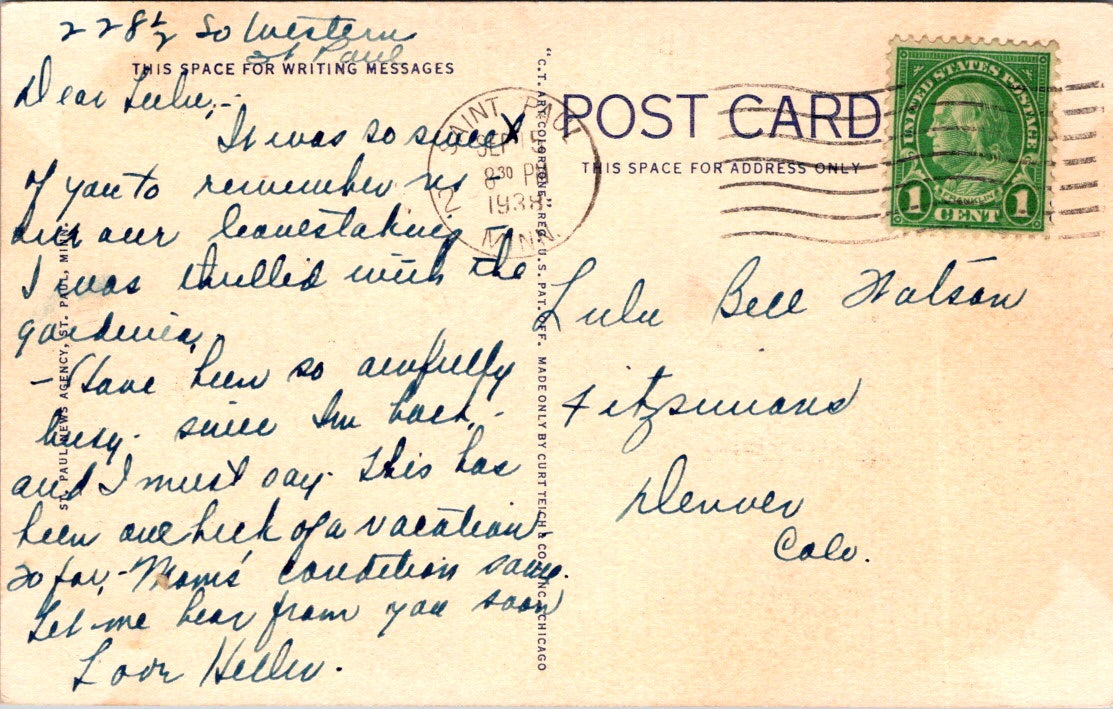 228 1/2 So Western
St Paul
THIS SPACE FOR WRITING MESSAGES
Dear Lulu,-
It was so sweet
of you to remember us -
our leavetaking -
I was thrilled with the
gardenia.
- Have been so awfully
busy - since I'm back, -
and I must say this has
been one heck of a vacation
so far, - Mom's condition same.
Let me hear from you soon
Love Helen.
ST. PAUL NEWS AGENCY, ST. PAUL, MINN.
"C.T. ART-COLORTONE" REG. U.S. PAT. OFF. MADE ONLY BY CURT TEICH & CO., INC., CHICAGO
SAINT PAUL
SEP 15
8 30 PM
1938
2 MINN.
POST CARD
THIS SPACE FOR ADDRESS ONLY
UNITED STATES POSTAGE
FRANKLIN
1 CENT 1
Lulu Bell Watson
Fitzsimons
Denver
Colo.